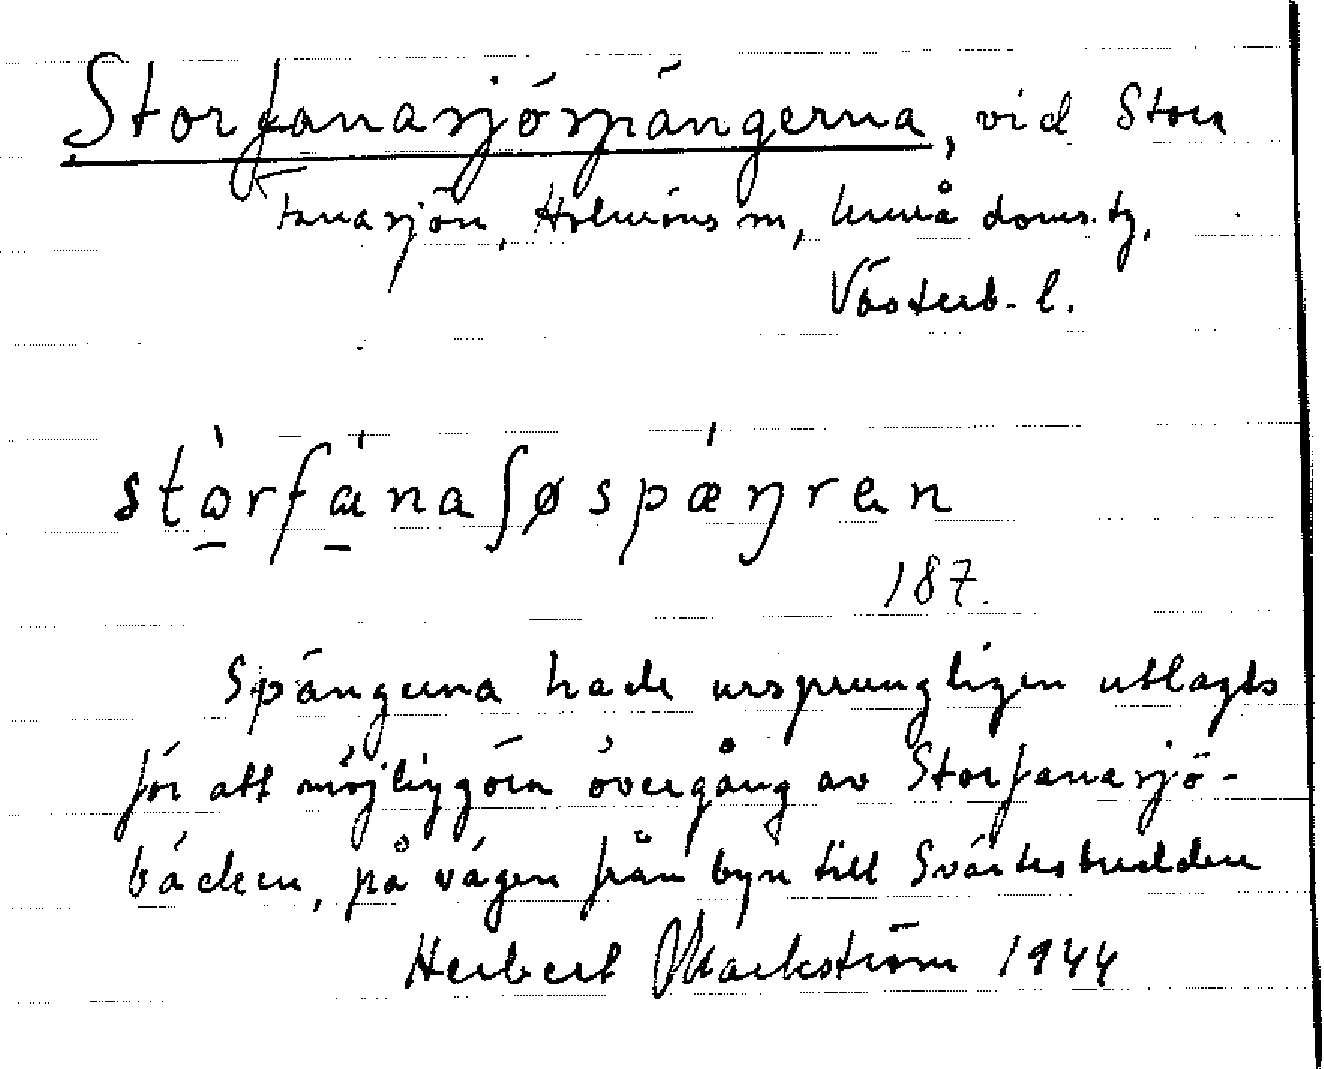 Storfanasjöspängerna, vid Stora
Fanasjön, Holmöns sn, Umeå doms. tg,
Västerb. l.
stɷ̀rfána ʃøspǽŋrɐn
187.
Spängerna hade ursprungligen utlagts
för att möjliggöra övergång av Storfanasjö-
bäcken, på vägen från byn till Svärtesbredden
Herbert Markström 1944